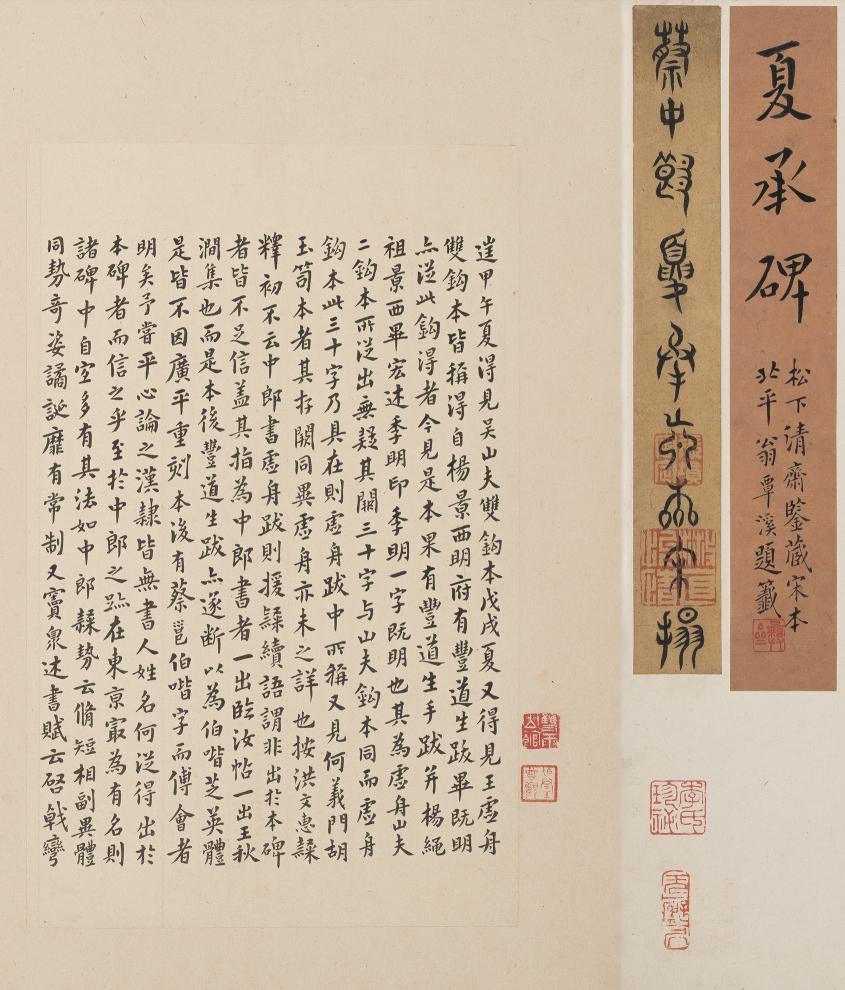 夏承碑
松下清齋鑒藏宋本
北平翁覃溪題籤
蔡中郎夏承碑宋搨
甲午夏得見吳山夫雙鈎本戊戌夏又得見王虛舟
雙鈎本皆稱得自楊景西明府有豐道生跋畢既明
亦從此鈎得者今見是本果有豐道生手跋并楊繩
祖景西畢宏述季明印季明一字既明也其為虛舟山夫
二鈎本所從出無疑其闕三十字与山夫鈎本同而虛舟
鈎本此三十字乃具在則虛舟跋中所稱又見何義門胡
玉筍本者其存闕同異虛舟亦未之詳也按洪文惠隸
釋初不云中郎書虛舟跋則援隸續語謂非出於本碑
者皆不足信盖其指為中郎書者一出臨汝帖一出王秋
澗集也而是本後豐道生跋亦遂斷以為伯喈芝英體
是皆不因廣平重刻本後有蔡邕伯喈字而傅會者
明矣予嘗平心論之漢隸皆無書人姓名何從得出於
本碑者而信之乎至於中郎之跡在東京寂為有名則
諸碑中自宜多有其法如中郎隸勢云脩短相副異體
同勢奇姿譎誕靡有常制又竇臮述書賦云啓戟彎
李氏珍祕